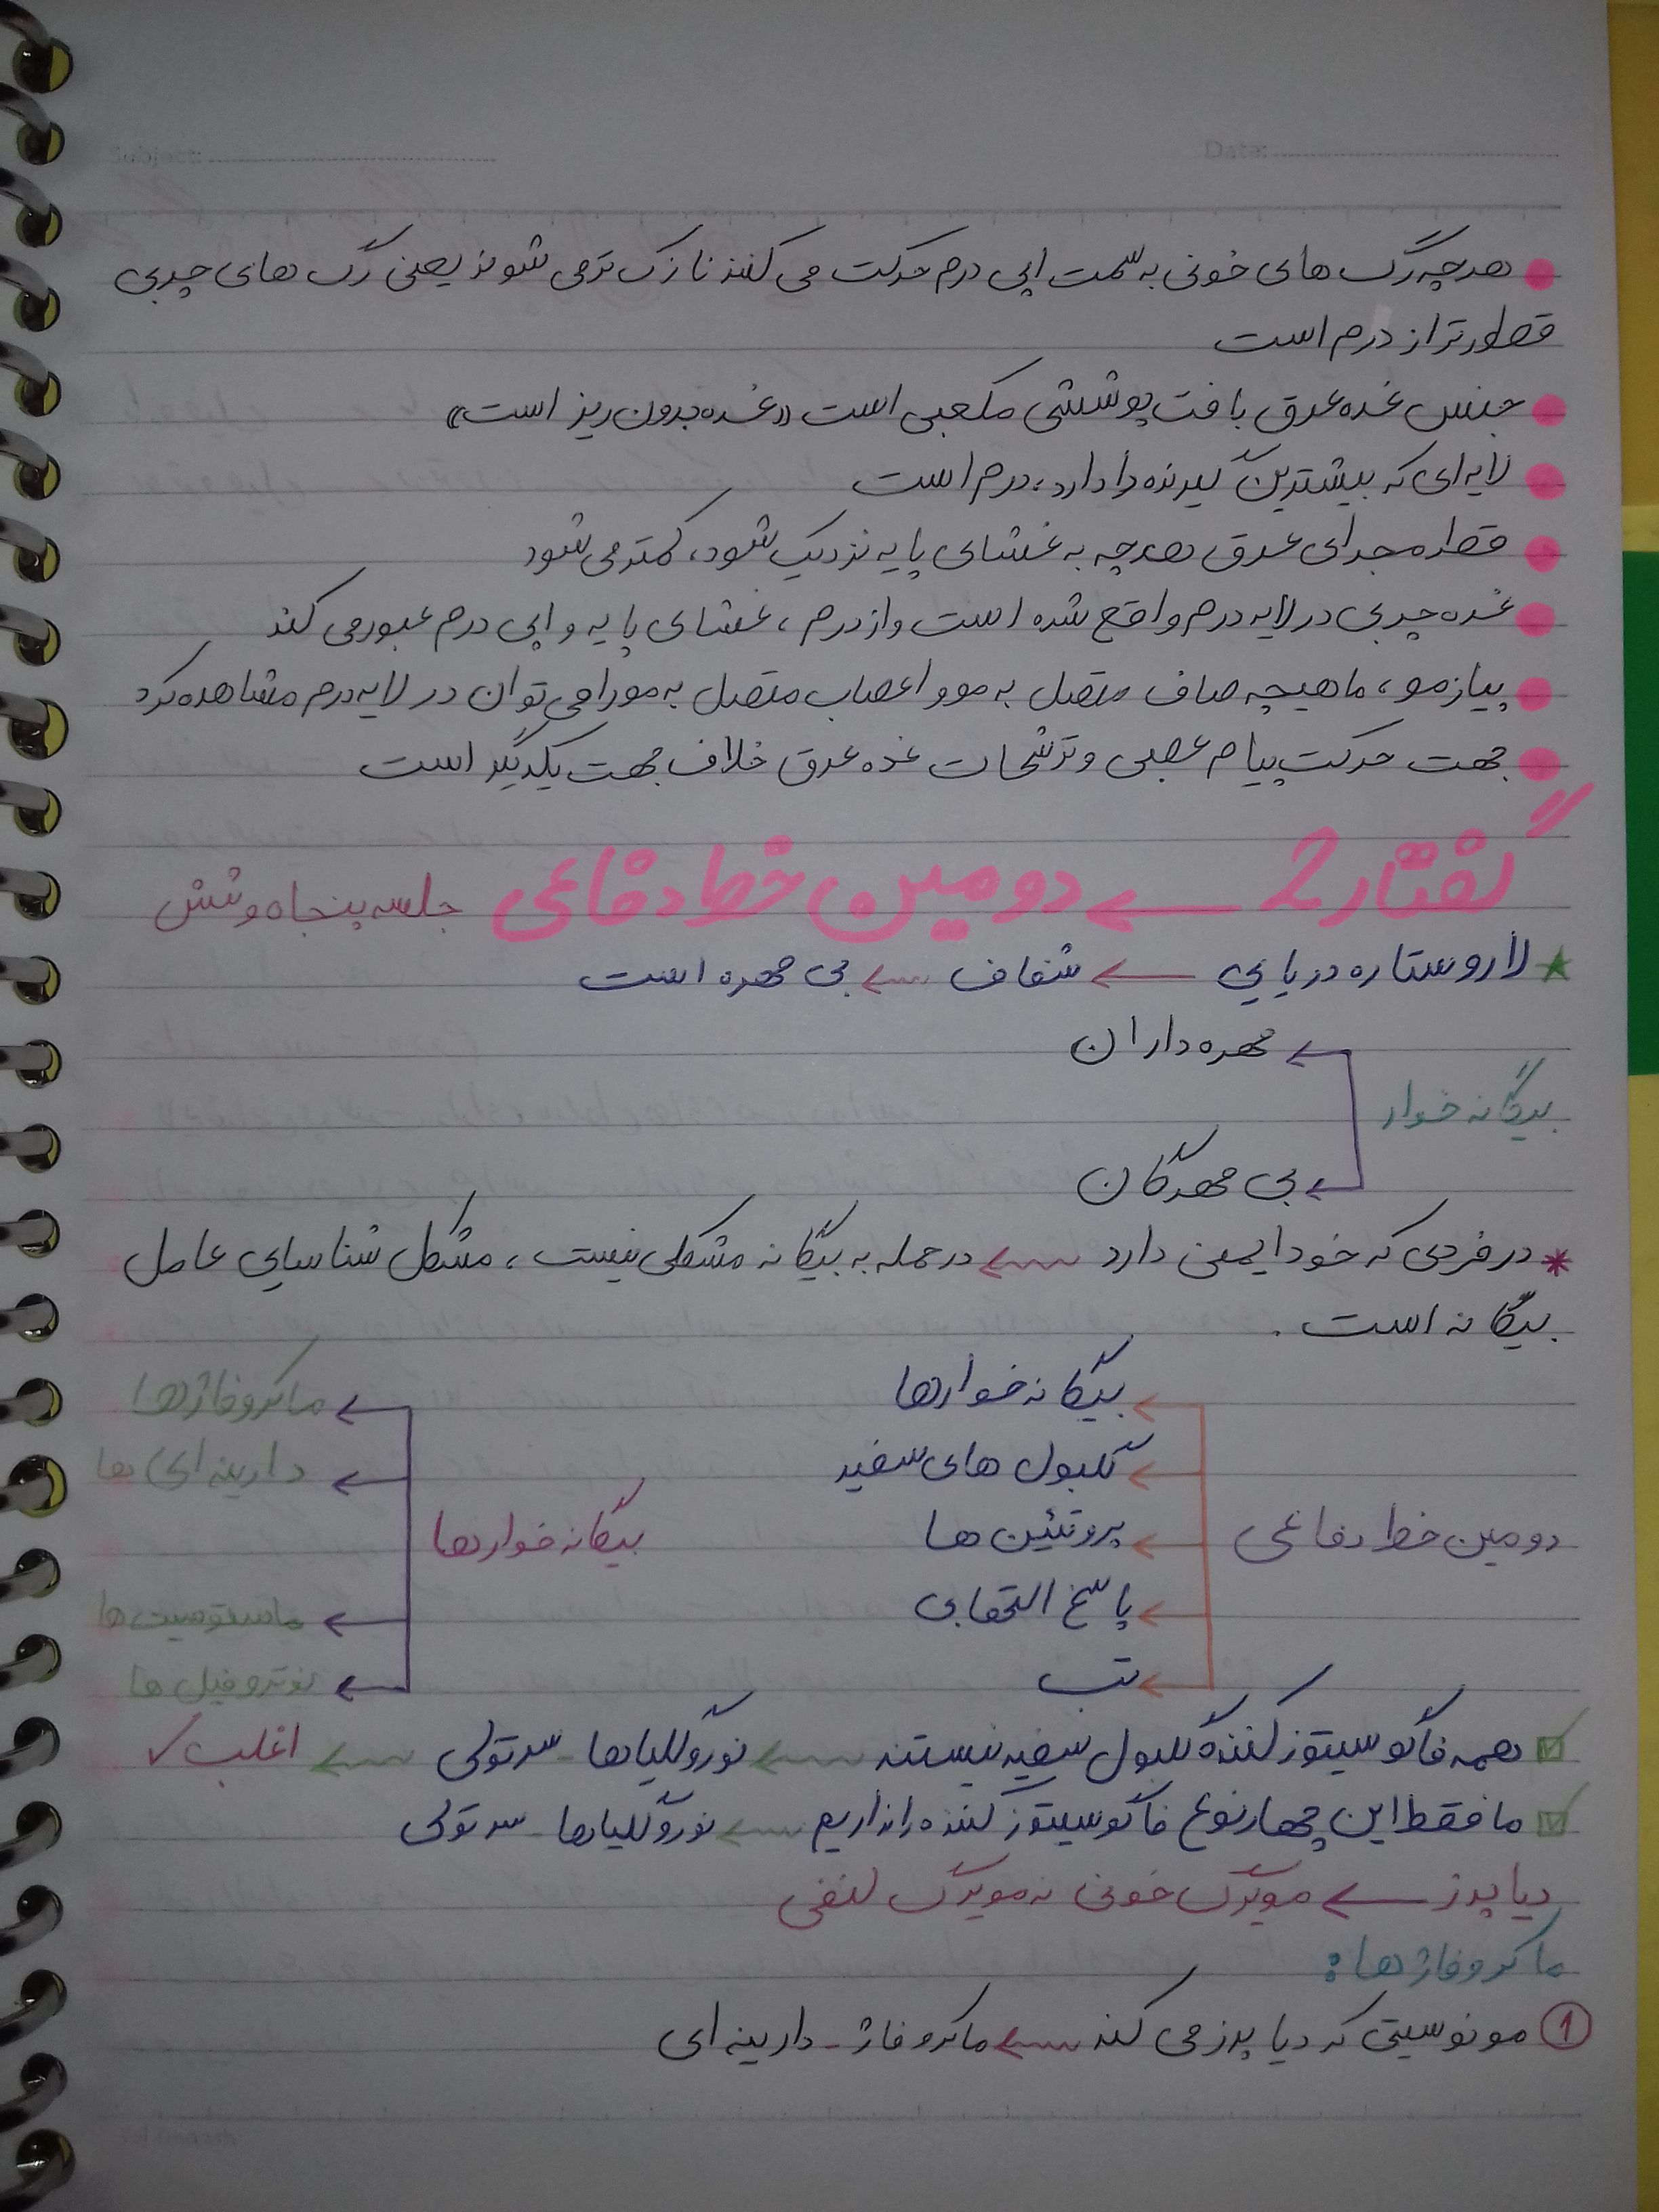 Subject: Date:
هرچه رگ های خونی به سمت اپی درم حرکت می کنند نازک تر می شوند یعنی رگ های چربی
قطورتر از درم است
جنس غده عرق بافت پوششی مکعبی است «غده برون ریز است»
لایه ای که بیشترین گیرنده را دارد، درم است
قطر مجرای عرق هرچه به غشای پایه نزدیک شود، کمتر می شود
غده چربی در لایه درم واقع شده است و از درم، غشای پایه و اپی درم عبور می کند
پیاز مو، ماهیچه صاف متصل به مو و اعصاب متصل به مو را می توان در لایه درم مشاهده کرد
جهت حرکت پیام عصبی و ترشحات غده عرق خلاف جهت یکدیگر است
گفتار ۲ ← دومین خط دفاعی جلسه پنجاه و شش
لارو ستاره دریایی ← شفاف ← بی مهره است
مهره داران
بیگانه خوار
بی مهرگان
* در فردی که خود ایمنی دارد ← در حمله به بیگانه مشکلی نیست، مشکل شناسایی عامل
بیگانه است.
بیگانه خوارها ماکروفاژها
گلبول های سفید دارینه ای ها
دومین خط دفاعی پروتئین ها بیگانه خوارها
پاسخ التهابی ماستوسیت ها
تب نوتروفیل ها
همه فاگوسیتوز کننده گلبول سفید نیستند ← نوروگلیاها - سرتولی ← اغلب ✓
ما فقط این چهار نوع فاگوسیتوز کننده را نداریم ← نوروگلیاها - سرتولی
دیاپدز ← مویرگ خونی نه مویرگ لنفی
ماکروفاژها:
① مونوسیتی که دیاپدز می کند ← ماکروفاژ - دارینه ای